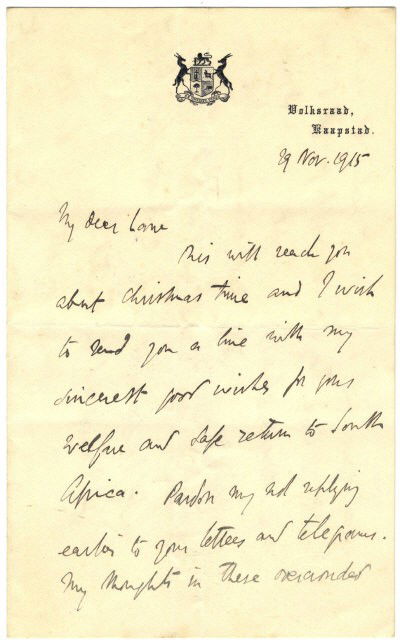 Volksraad,
Kaapstad.
29 Nov. 1915
My dear Lane
This will reach you
about Christmas time and I wish
to send you a line with my
sincerest good wishes for your
welfare and safe return to South
Africa. Pardon my not replying
earlier to your letters and telegrams.
My thoughts in these overcrowded